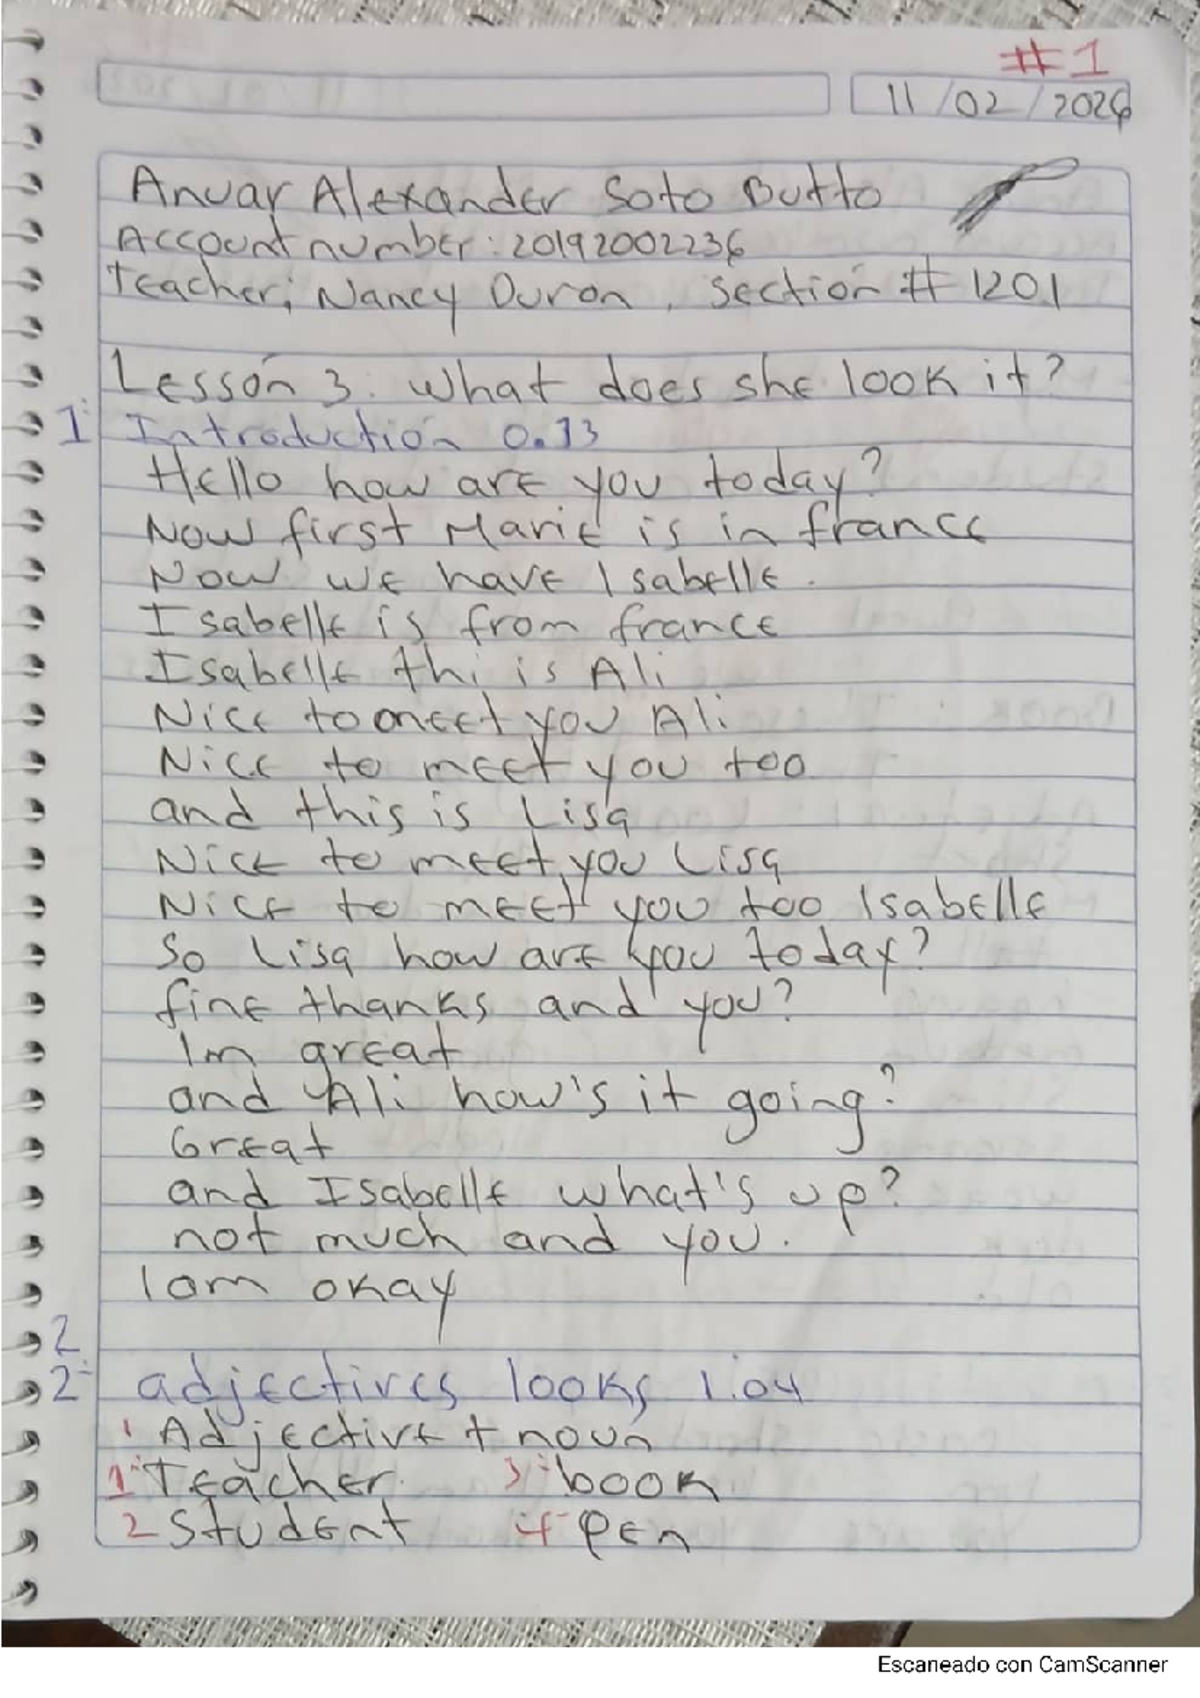 #1
11/02/2026
Anuar Alexander Soto Butto
Account number: 20192002236
Teacher; Nancy Duron, section # 1201
Lesson 3. What does she look it?
1: Introduction 0.13
Hello how are you today?
Now first Marie is in france
Now we have Isabelle.
Isabelle is from france
Isabelle thi is Ali
Nice to meet you Ali
Nice to meet you too
and this is Lisa
Nice to meet you Lisa
Nice to meet you too Isabelle
So Lisa how are you today?
fine thanks and you?
Im great
and Ali how's it going?
Great
and Isabelle what's up?
not much and you.
I am okay
2
2: adjectives looks 1.04
1 Adjective + noun
1: Teacher. 3: book
2 Student 4- Pen
Escaneado con CamScanner